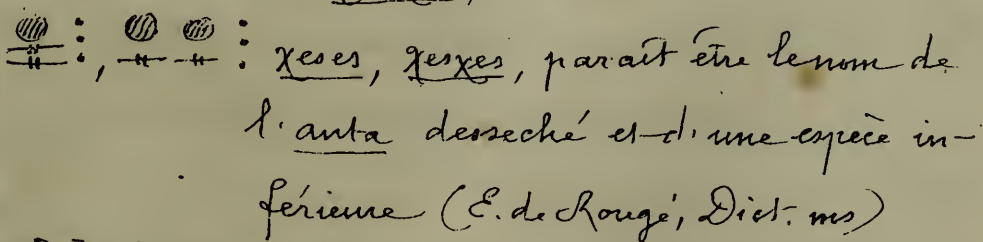 𓐍𓊃𓊃 : , 𓐍𓊃𓐍𓊃 : χeses, χesχes, paraît être le nom de
l'anta desseché et d'une espèce in-
férieure (E. de Rougé, Dict. ms)